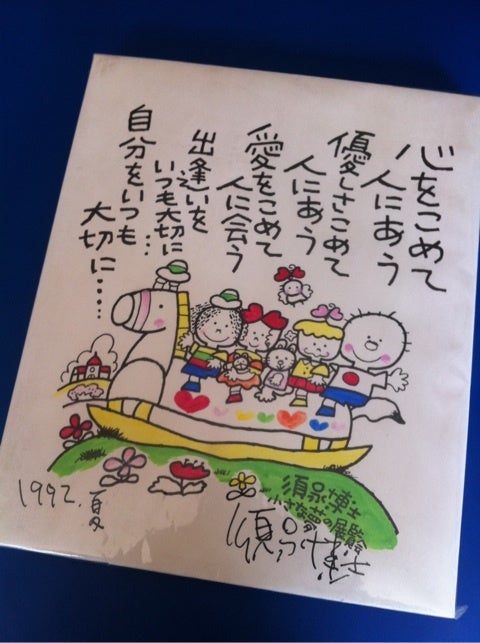 心をこめて
人にあう
優しさこめて
人にあう
愛をこめて
人に会う
出逢いを
いつも大切に…
自分をいつも
大切に……
1992.夏
須呆博士